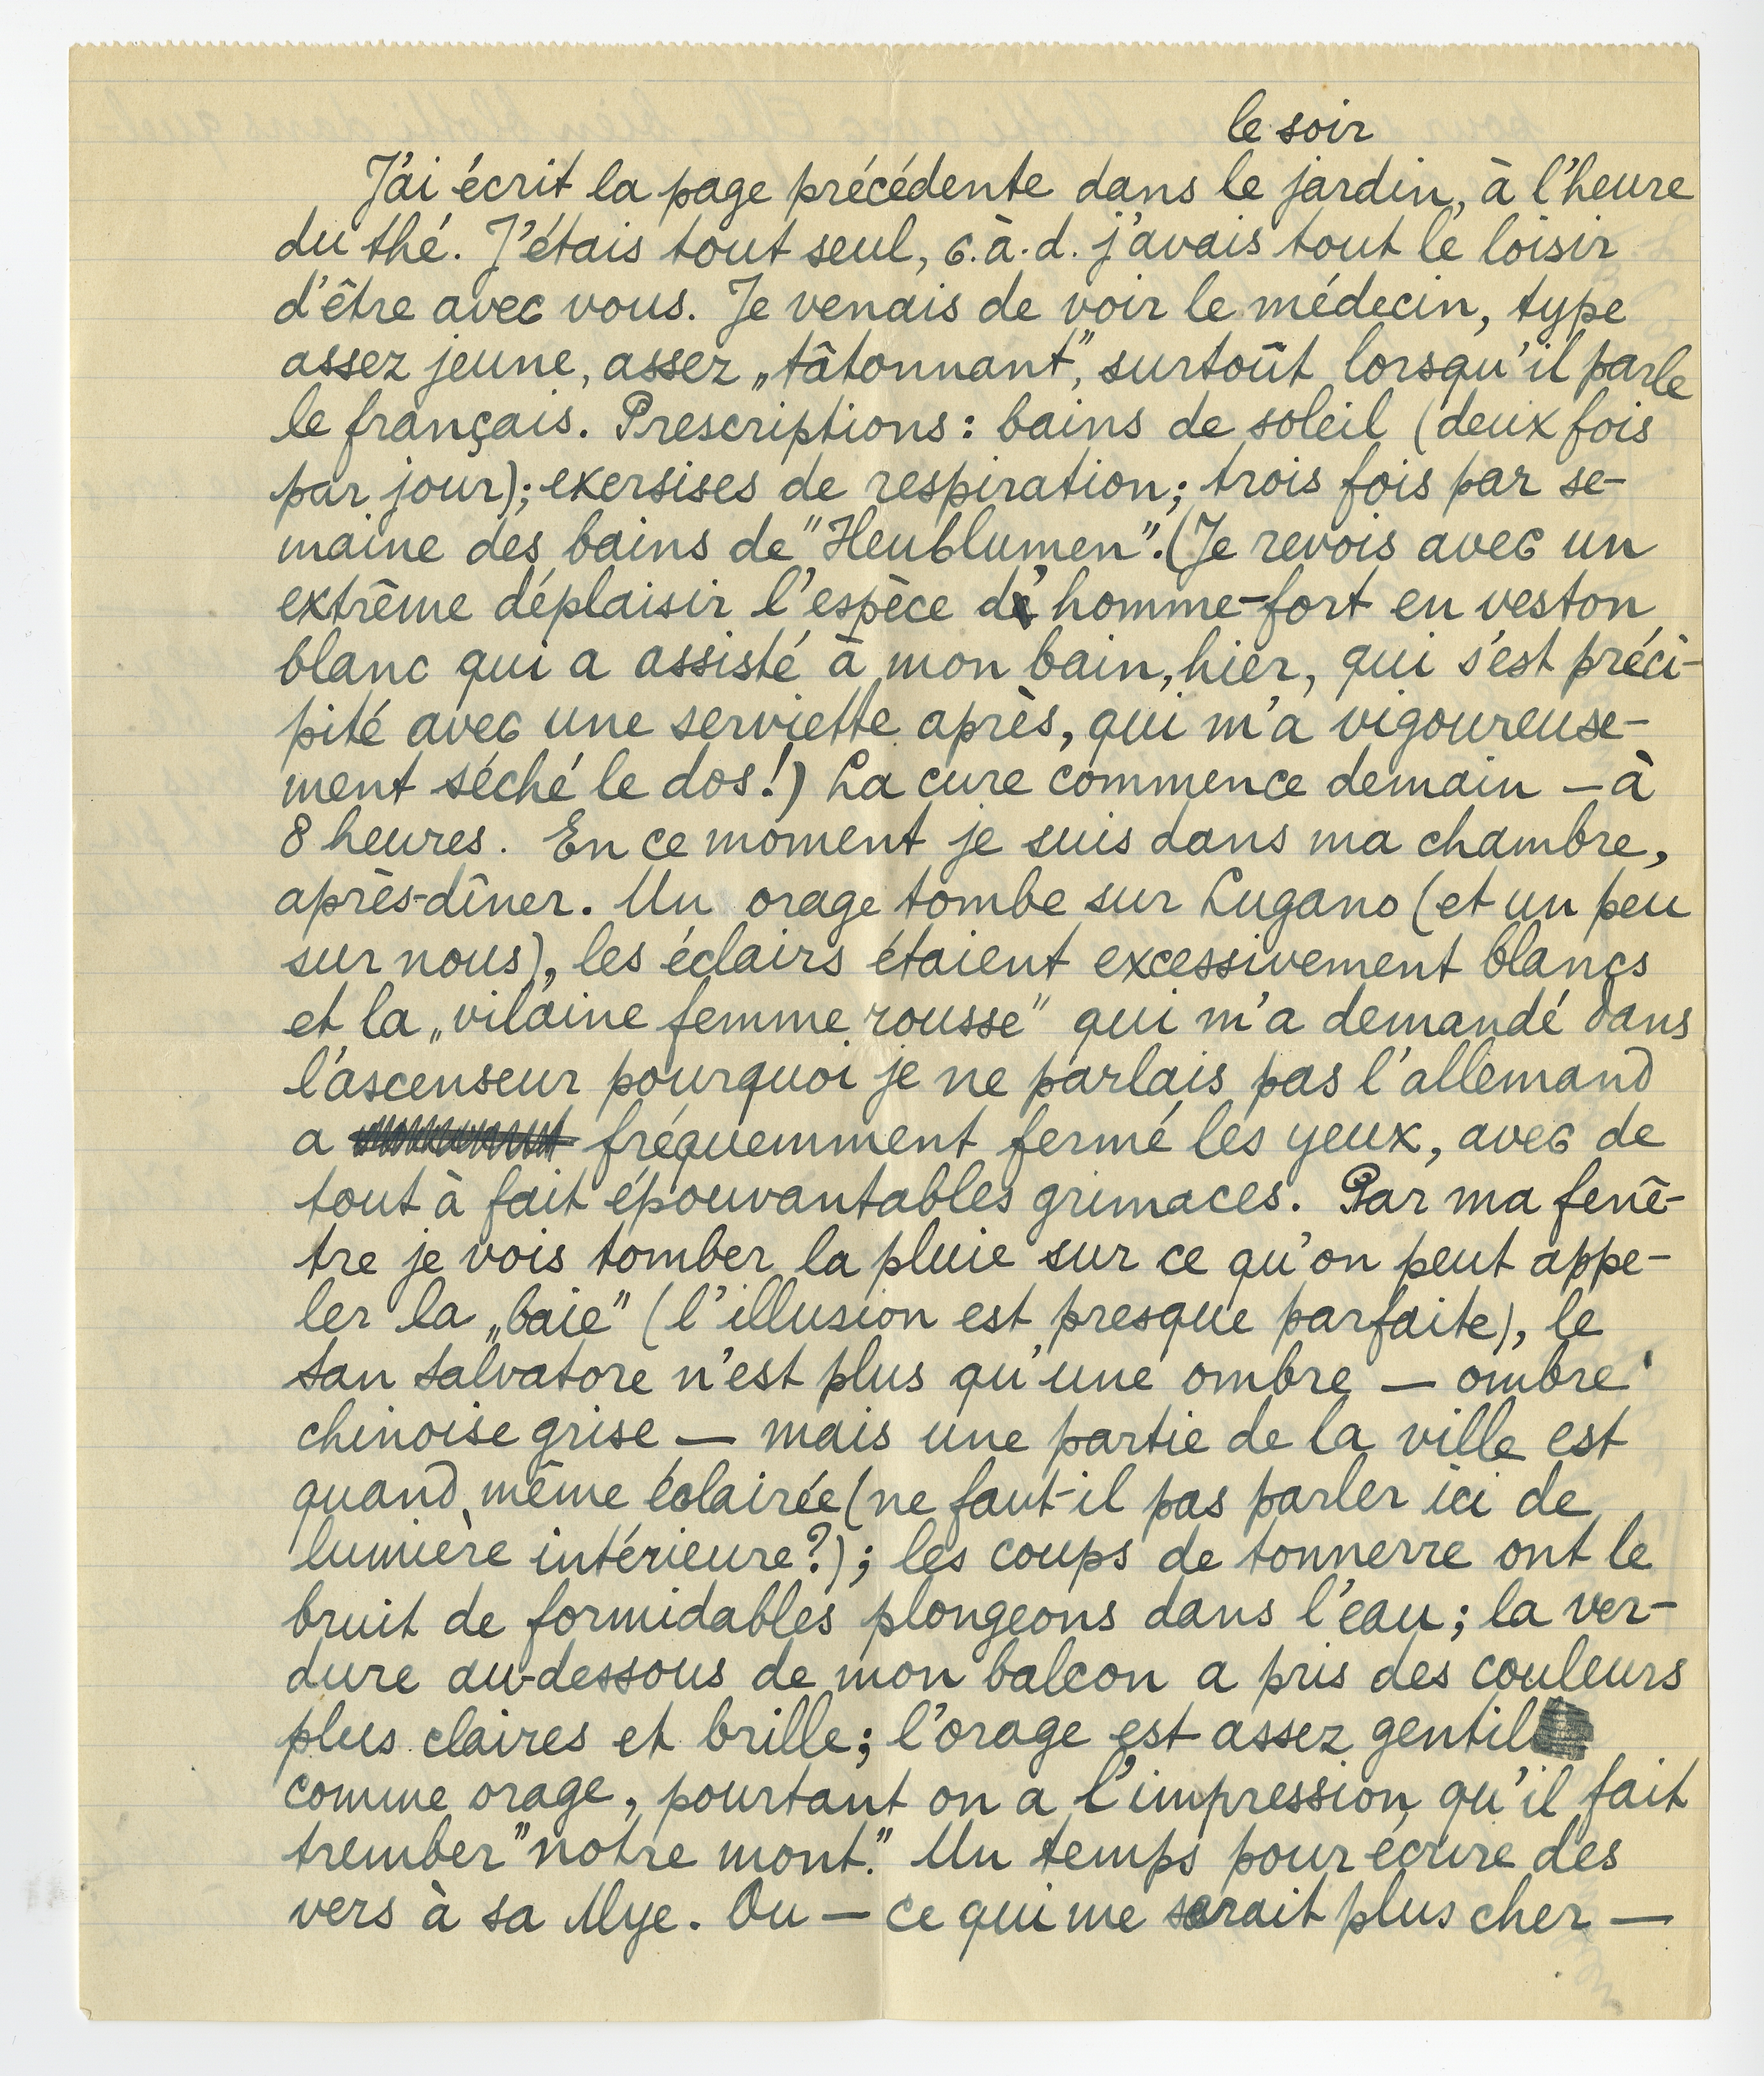 le soir
J'ai écrit la page précédente dans le jardin, à l'heure
du thé. J'étais tout seul, c.à.d. j'avais tout le loisir
d'être avec vous. Je venais de voir le médecin, type
assez jeune, assez „tâtonnant", surtoût lorsqu'il parle
le français. Prescriptions: bains de soleil (deux fois
par jour); exersises de respiration; trois fois par se-
maine des bains de "Heublumen". (Je revois avec un
extrême déplaisir l'espèce d'homme-fort en veston
blanc qui a assisté à mon bain, hier, qui s'est préci-
pité avec une serviette après, qui m'a vigoureuse-
ment séché le dos!) La cure commence demain — à
8 heures. En ce moment je suis dans ma chambre,
après-dîner. Un orage tombe sur Lugano (et un peu
sur nous), les éclairs étaient excessivement blancs
et la „vilaine femme rousse" qui m'a demandé dans
l'ascenseur pourquoi je ne parlais pas l'allemand
a fréquemment fermé les yeux, avec de
tout à fait épouvantables grimaces. Par ma fenê-
tre je vois tomber la pluie sur ce qu'on peut appe-
ler la „baie" (l'illusion est presque parfaite), le
San Salvatore n'est plus qu'une ombre — ombre
chinoise grise — mais une partie de la ville est
quand même éclairée (ne faut-il pas parler ici de
lumière intérieure?); les coups de tonnerre ont le
bruit de formidables plongeons dans l'eau; la ver-
dure au-dessous de mon balcon a pris des couleurs
plus claires et brille; l'orage est assez gentil
comme orage, pourtant on a l'impression qu'il fait
trember "notre mont." Un temps pour écrire des
vers à sa Mye. Ou — ce qui me serait plus cher —